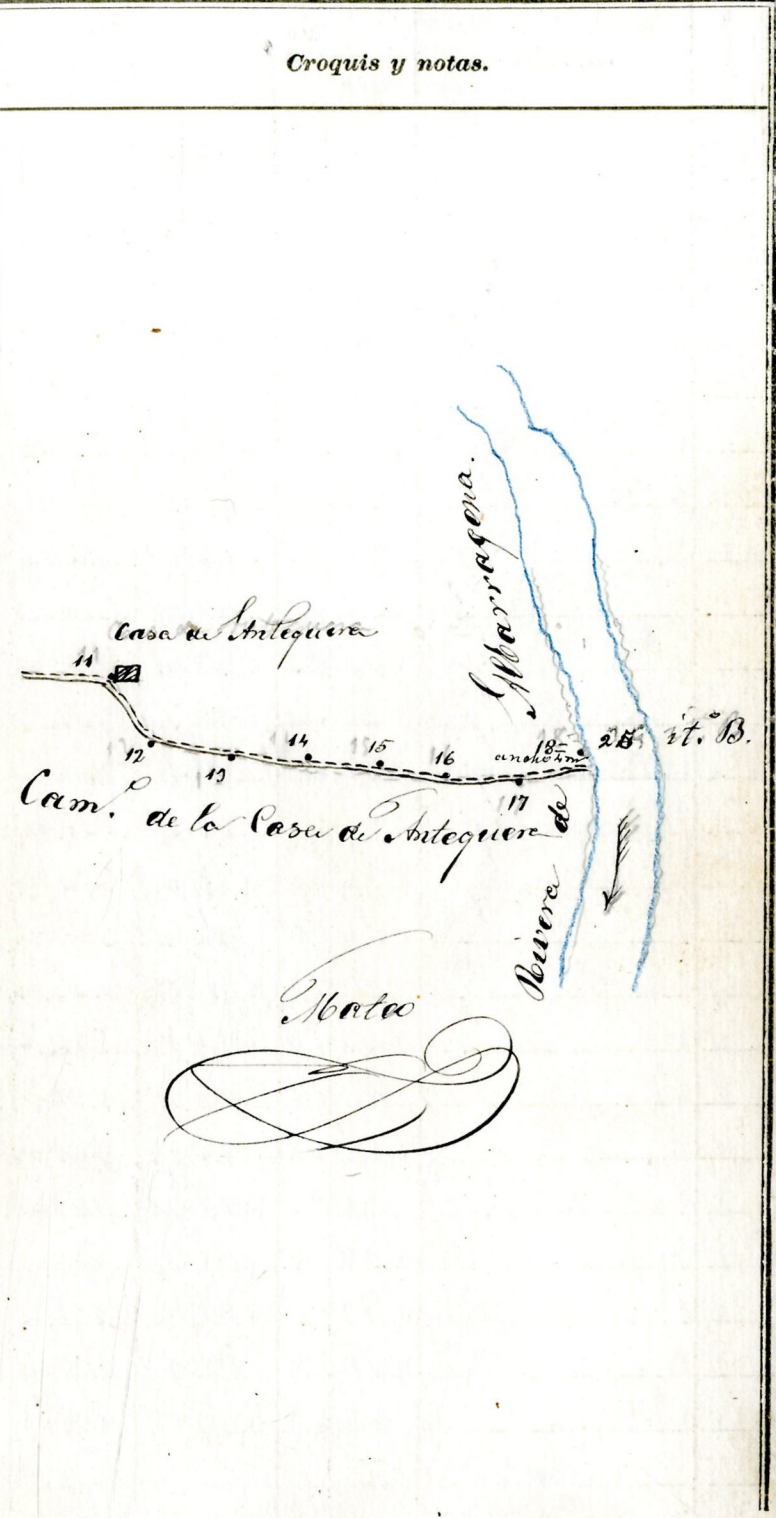 Croquis y notas.
Casa de Antequera
11
12
13
14
15
16
17
18=
ancho 4m
25 it.º B.
Cam.º de la Casa de Antequera
Rivera de Albarragena.
Mateo